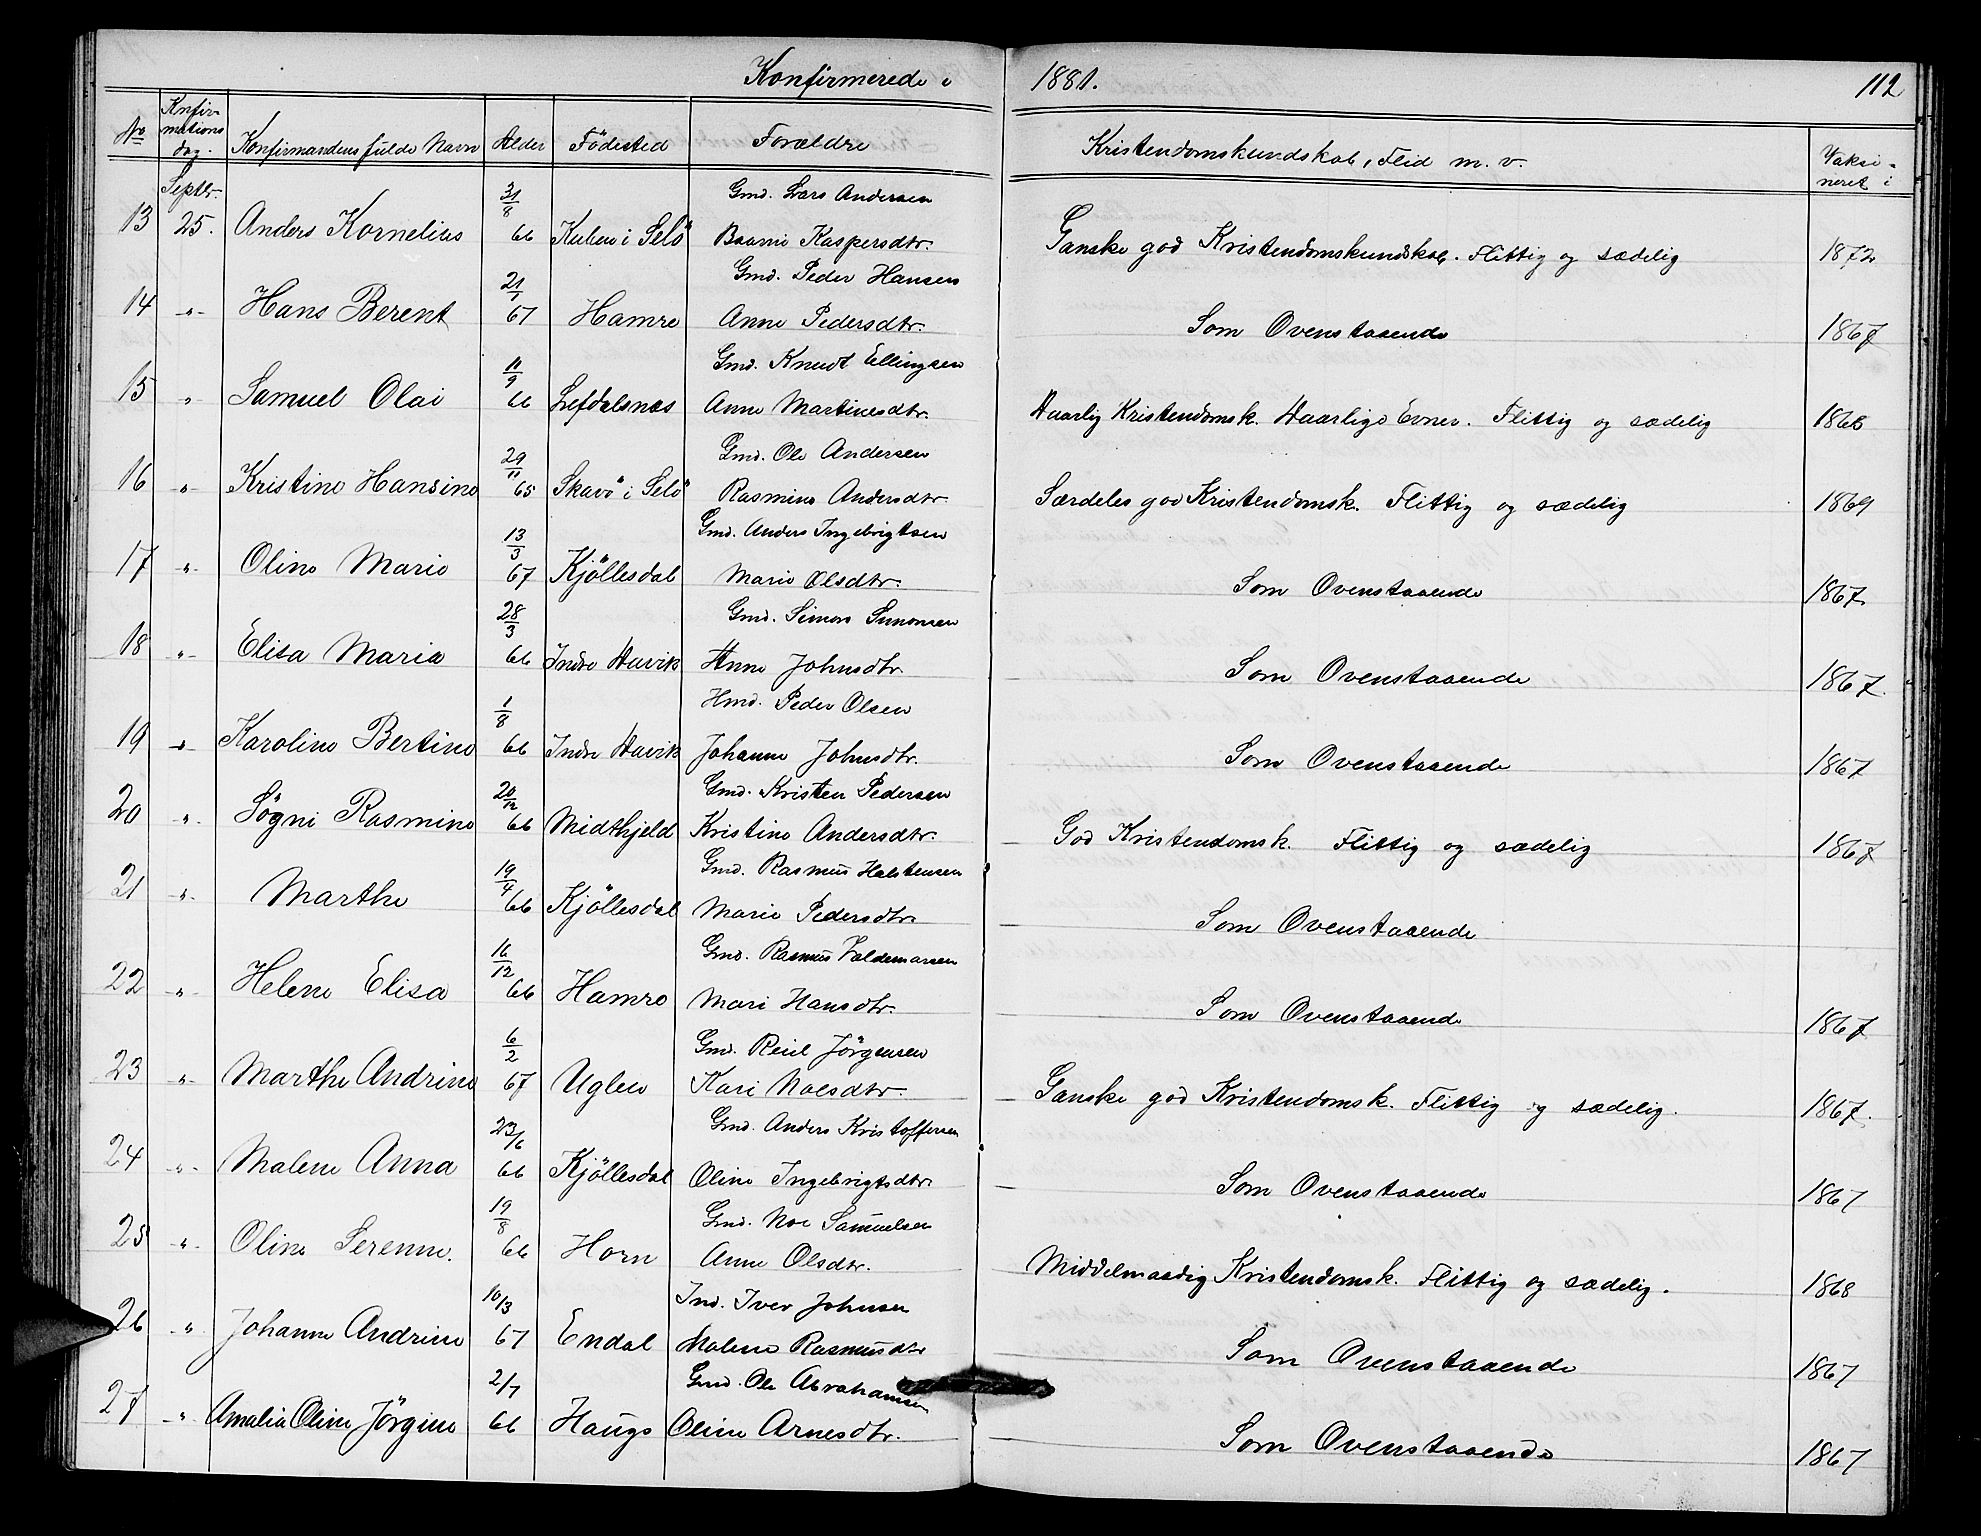 Konfirmerede i 1881. 112
No Knfirmations dag. Konfirmandens fulde Navn Alder Födested Forældre Kristendomskundskab, Flid m. v. Vaksineret i
Septbr. 31/8 Gmd. Lars Andersen
13 25. Anders Kornelius 66 Kuben i Selö Kaspersdtr. Ganske god Kristendomskundskab. Flittig og sædelig 1872
21/1 Gmd. Peder Hansen
14 -"- Hans Berent 67 Hamre Anne Pedersdtr. Som Ovenstaaende 1867
11/9 Gmd. Knudt Ellingsen
15 " Samuel Olai 66 Lefdalsnæs Anne Martinesdtr. Maarlig Kristendomsk. Maarlige Evner. Flittig og sædelig 1868
29/11 Gmd. Ole Andersen
16 " Kristine Hansine 65 Skavö i Selö Rasmine Andersdtr. Særdeles god Kristendomsk. Flittig og sædelig 1869
13/3 Gmd. Anders Ingebrigtsen
17 -"- Oline Marie 67 Kjöllesdal Marie Olsdtr. Som Ovenstaaende 1867
28/3 Gmd. Simon Simonsen
18 -"- Elisa Maria 66 Indre Haavik Anne Johnsdtr. Som Ovenstaaende 1867
1/8 Hmd. Peder Olsen
19 -"- Karoline Bertine 66 Indre Haavik Johanne Johnsdtr. Som Ovenstaaende 1867
20/12 Gmd. Kristen Pedersen
20 -"- Sögni Rasmine 66 Midthjeld Kristine Andersdtr. God Kristendomsk. Flittig og sædelig 1867
19/4 Gmd. Rasmus Halstensen
21 -"- Marthe 66 Kjöllesdal Marie Pedersdtr. Som Ovenstaaende
16/12 Gmd. Rasmus Valdemarsen
22 -"- Helene Elisa 66 Hamre Mari Hansdtr. Som Ovenstaaende 1867
6/2 Gmd. Jörgensen
23 -"- Marthe Andrine 67 Uglen Kari Noesdtr. Ganske god Kristendomsk. Flittig og sædelig. 1867.
23/6 Gmd. Anders Kristoffersen
24 -"- Malene Anna 66 Kjöllesdal Oline Ingebrigtsdtr. Som Ovenstaaende 1867
19/8 Gmd. Noe Samuelsen
25 -"- Oline Serenne. 66 Horn Anne Olsdtr. Middelmaadig Kristendomsk. Flittig og sædelig. 1868
10/3 Ind. Iver Johnsen
26 -"- Johanne Andrine 67 Endal Malene Rasmusdtr Som Ovenstaaende 1867
2/7 Gmd. Ole Abrahamsen
27 -"- Amalia Oline Jörgine 66 Haugs Oline Arnesdtr. Som Ovenstaaende 1867